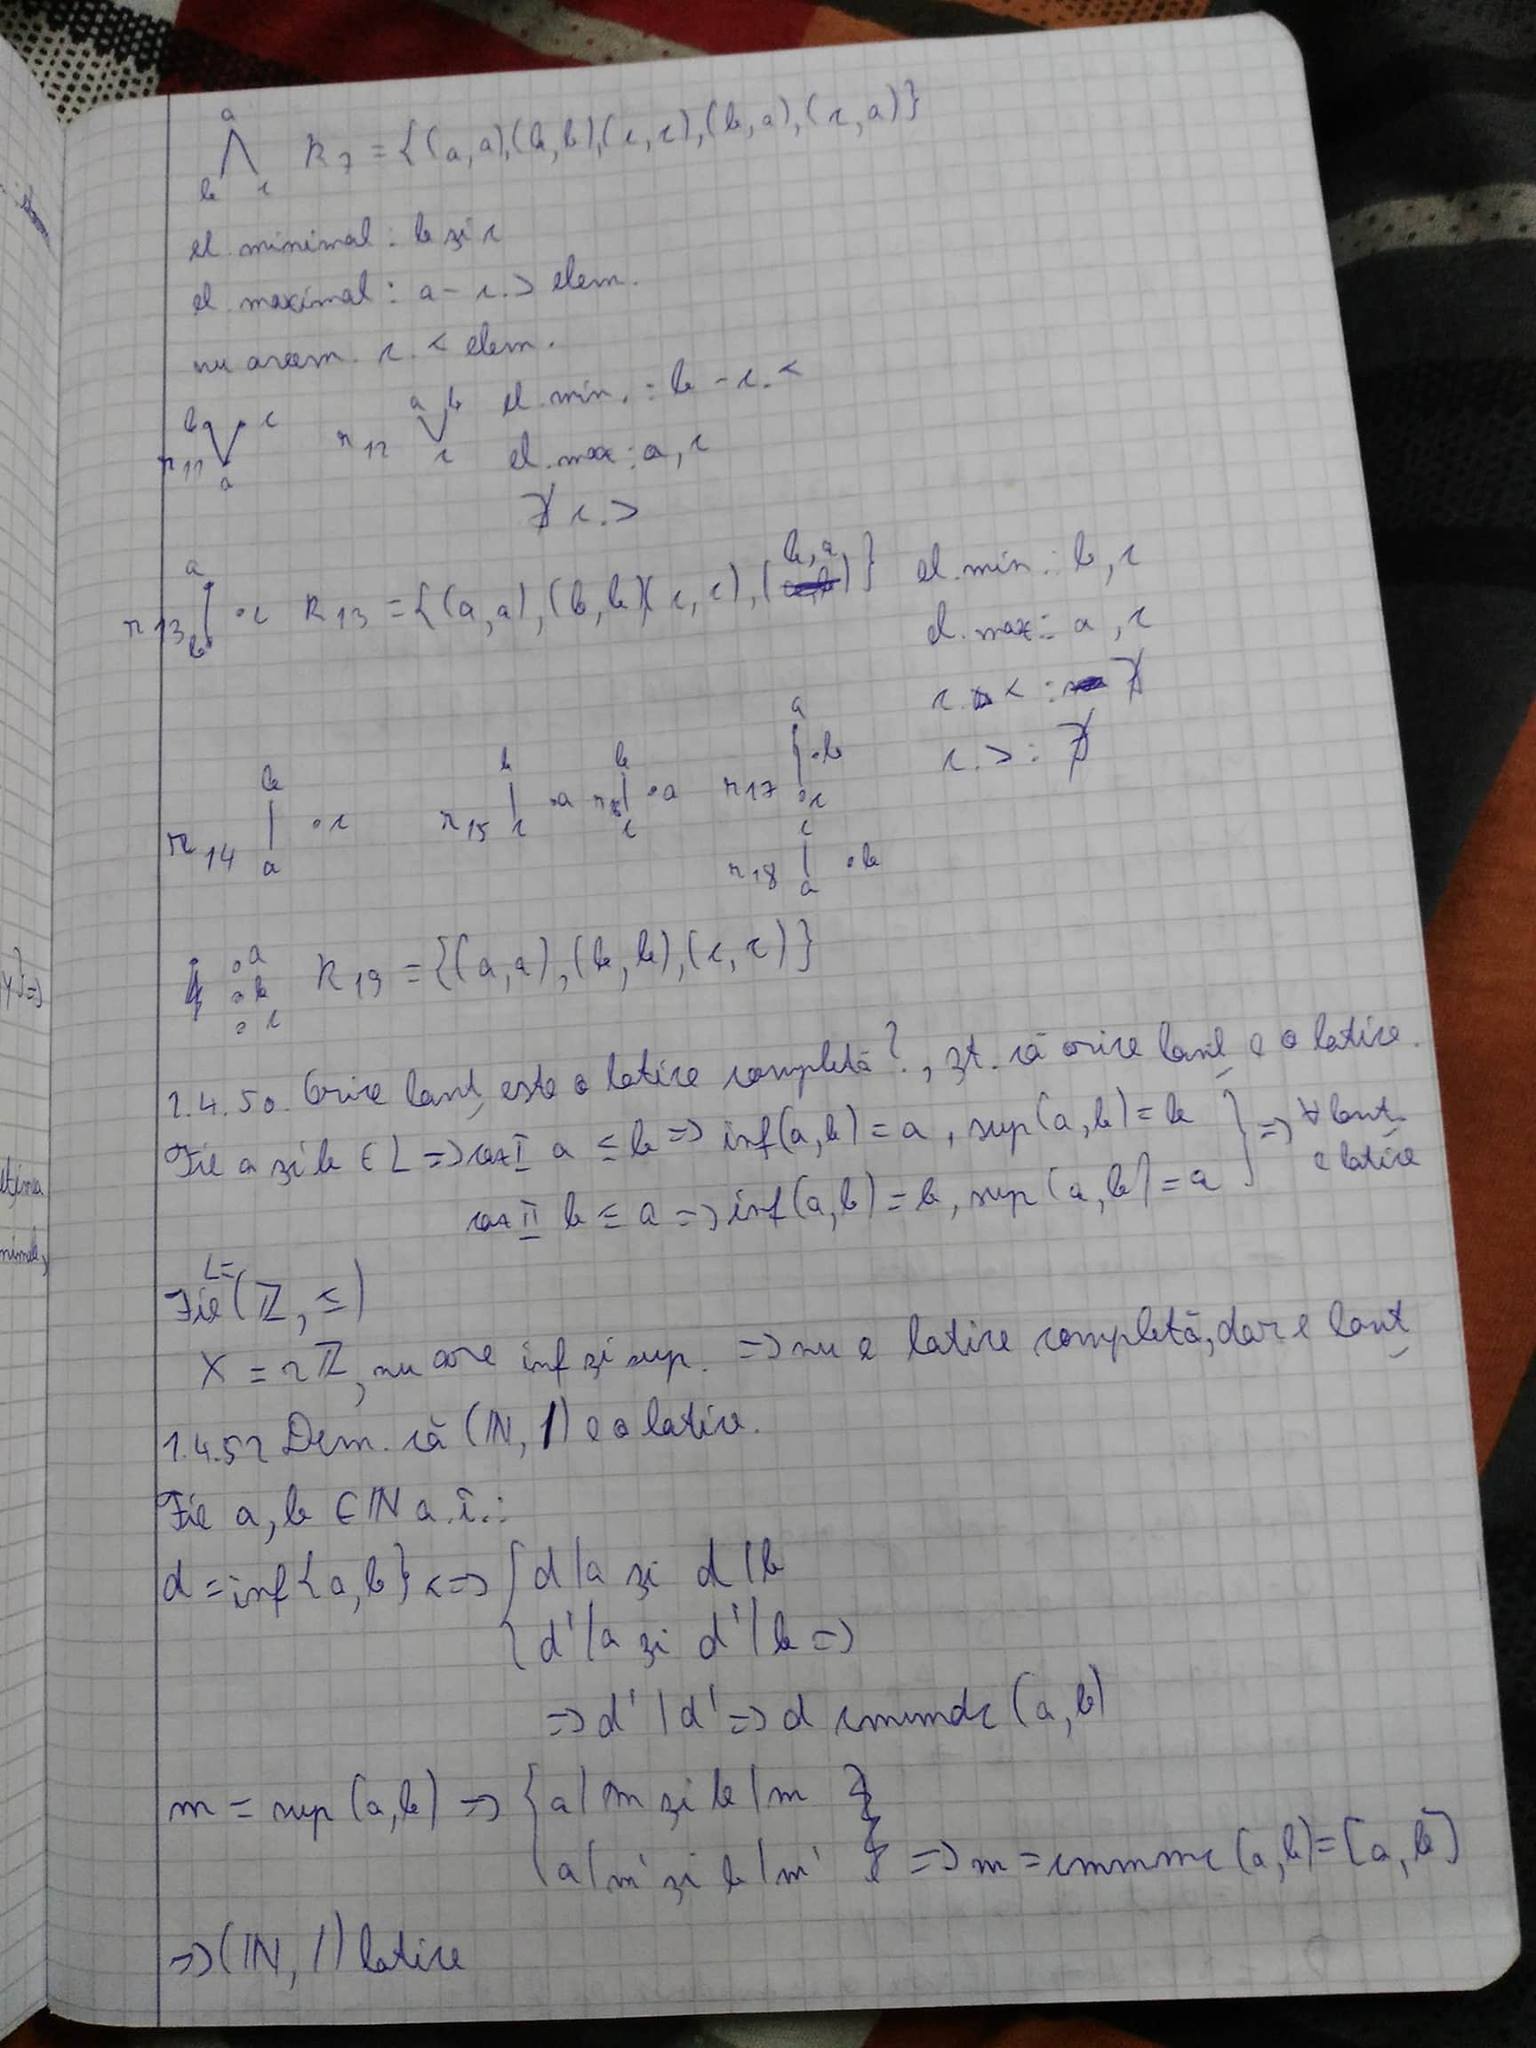 a
b c R7 = {(a,a),(b,b),(c,c),(b,a),(c,a)}
el. minimal: b și c
el. maximal: a - c. > elem.
nu avem c. < elem.
b c
r11
a
a b
r12
c
el. min. : b - c. <
el. max : a, c
∄ c. >
a
r13 b . c R13 = {(a,a),(b,b)(c,c),(b,a)}
el. min : b, c
el. max : a, c
c. < : ∄
c. > : ∄
b
r14 . c
a
b
r15 c . a
b
. a
c
a
r17 . b
c
c
r18 . b
a
. a
. b R19 = {(a,a),(b,b),(c,c)}
. c
1.4.50. Orice lanț este o latice completă?, șt. că orice lanț e o latice.
Fie a și b ∈ L => caz I a ≤ b => inf(a,b) = a, sup(a,b) = b } => ∀ lanț
caz II b ≤ a => inf(a,b) = b, sup(a,b) = a e latice
L=
Fie (ℤ, ≤)
X = 2ℤ, nu are inf și sup. => nu e latice completă, dar e lanț
1.4.52 Dem. că (ℕ, |) e o latice.
Fie a, b ∈ ℕ a.î.:
d = inf{a,b} <=> { d | a și d | b
d' | a și d' | b =>
=> d' | d' => d cmmdc (a,b)
m = sup (a,b) => { a | m și b | m }
a | m' și b | m' } => m = cmmmc (a,b) = [a, b]
=> (ℕ, |) latice